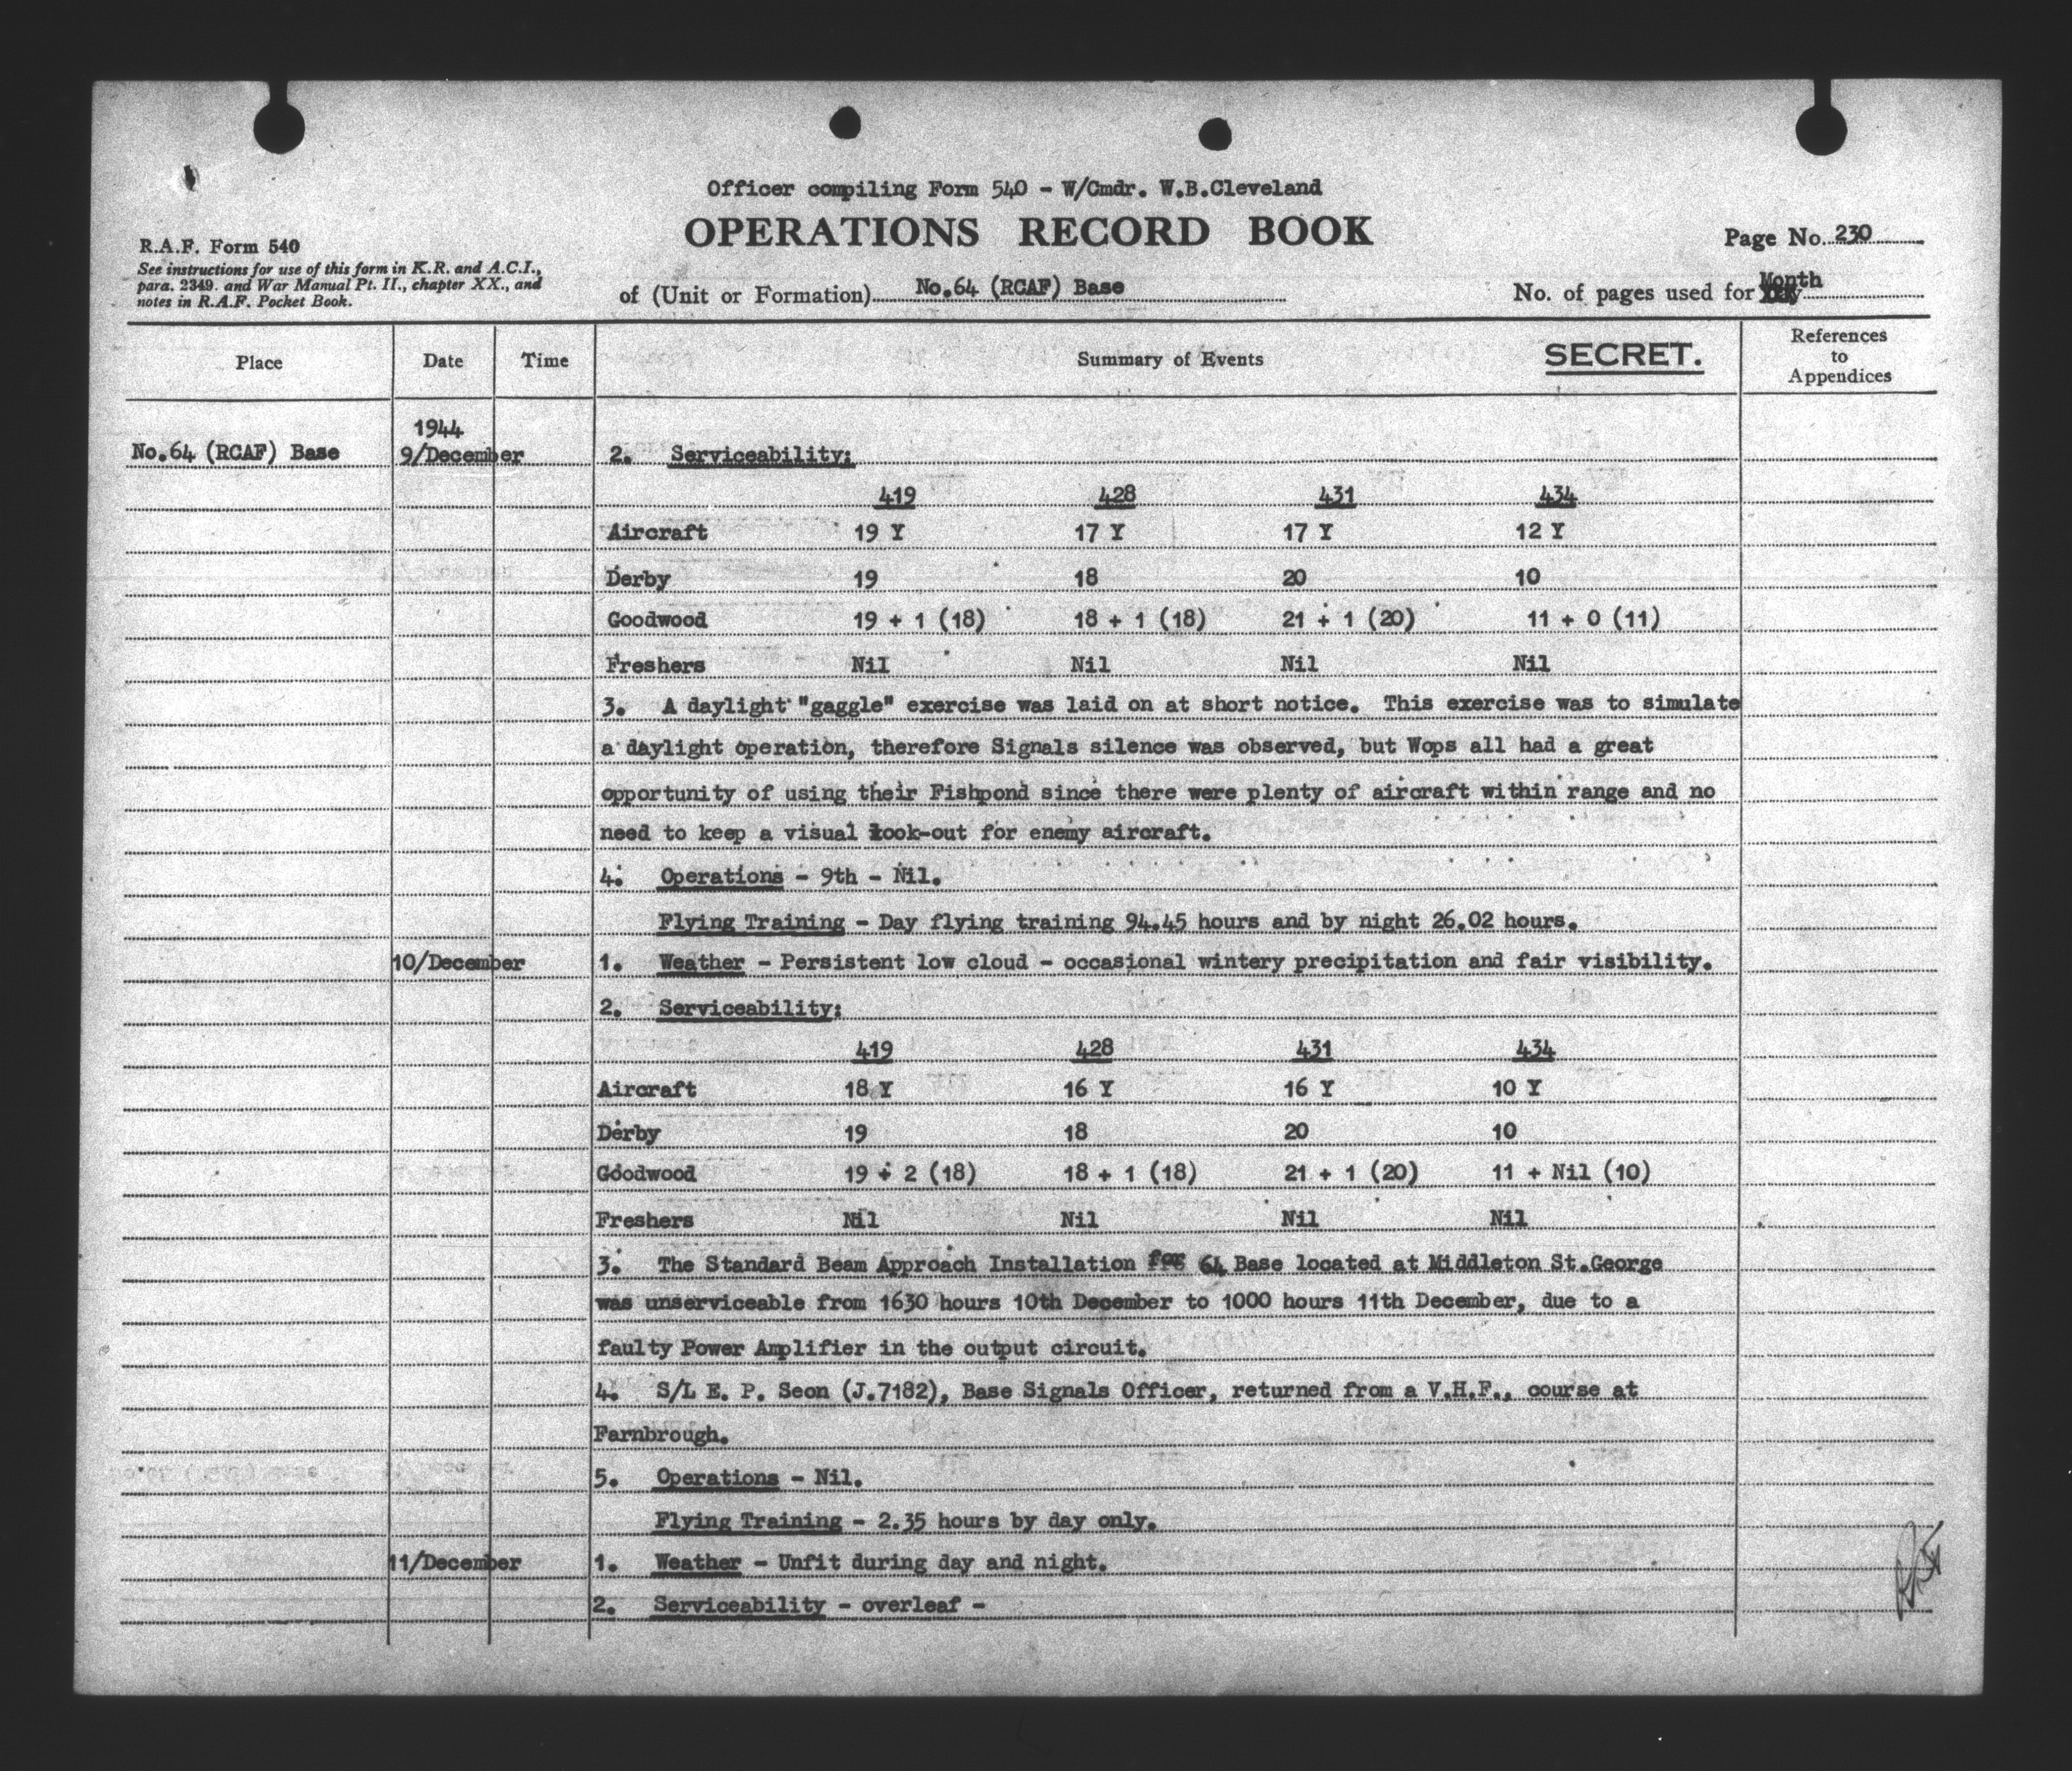 Officer compiling Form 540 - W/Cmdr. W.B.Cleveland
OPERATIONS RECORD BOOK
R.A.F. Form 540
See instructions for use of this form in K.R. and A.C.I.,
para. 2349. and War Manual Pt. II., chapter XX., and
notes in R.A.F. Pocket Book.
Page No. 230
of (Unit or Formation) No.64 (RCAF) Base
No. of pages used for Month
Place Date Time Summary of Events SECRET. References
to
Appendices
1944
No.64 (RCAF) Base 9/December 2. Serviceability:
419 428 431 434
Aircraft 19 Y 17 Y 17 Y 12 Y
Derby 19 18 20 10
Goodwood 19 + 1 (18) 18 + 1 (18) 21 + 1 (20) 11 + 0 (11)
Freshers Nil Nil Nil Nil
3. A daylight "gaggle" exercise was laid on at short notice. This exercise was to simulate
a daylight operation, therefore Signals silence was observed, but Wops all had a great
opportunity of using their Fishpond since there were plenty of aircraft within range and no
need to keep a visual look-out for enemy aircraft.
4. Operations - 9th - Nil.
Flying Training - Day flying training 94.45 hours and by night 26.02 hours.
10/December 1. Weather - Persistent low cloud - occasional wintery precipitation and fair visibility.
2. Serviceability:
419 428 431 434
Aircraft 18 Y 16 Y 16 Y 10 Y
Derby 19 18 20 10
Goodwood 19 + 2 (18) 18 + 1 (18) 21 + 1 (20) 11 + Nil (10)
Freshers Nil Nil Nil Nil
3. The Standard Beam Approach Installation for 64 Base located at Middleton St.George
was unserviceable from 1630 hours 10th December to 1000 hours 11th December, due to a
faulty Power Amplifier in the output circuit.
4. S/L E. P. Seon (J.7182), Base Signals Officer, returned from a V.H.F., course at
Farnbrough.
5. Operations - Nil.
Flying Training - 2.35 hours by day only.
11/December 1. Weather - Unfit during day and night.
2. Serviceability - overleaf -